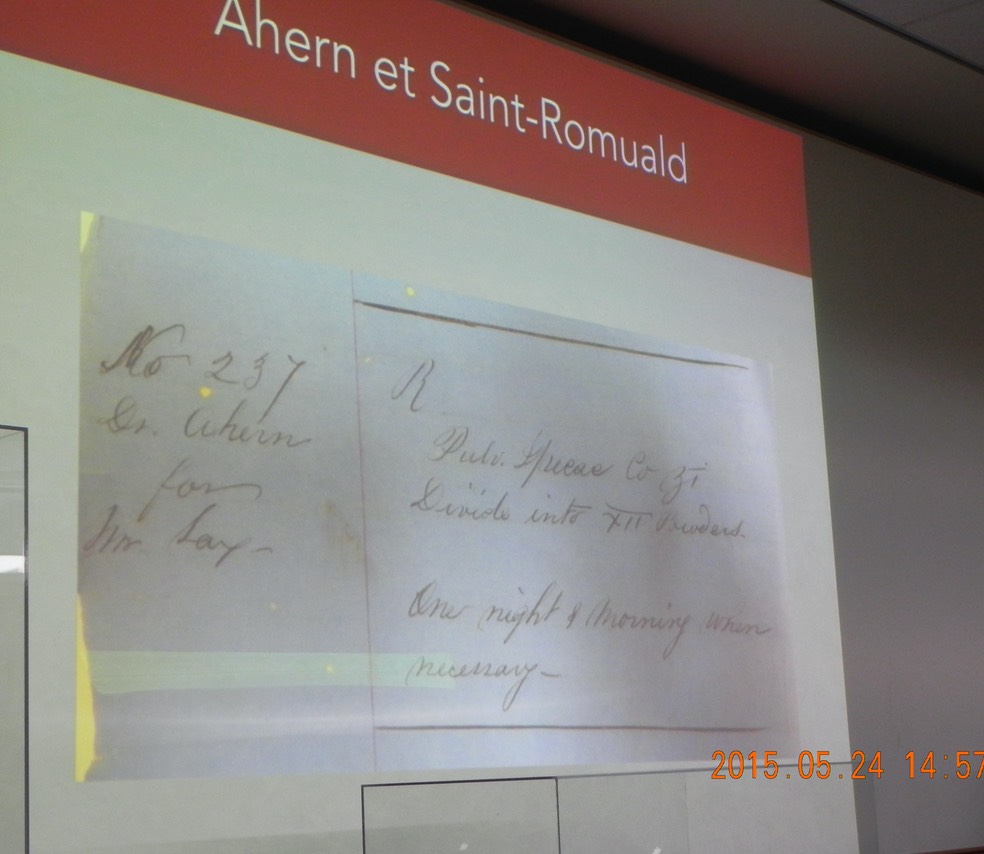 Ahern et Saint-Romuald
No 237
Dr. Ahern
for
Mr Lay -
R
Pulv. Ipecac Co ʒi
Divide into XII Powders.
One night & Morning when
necessary -
2015.05.24 14:57